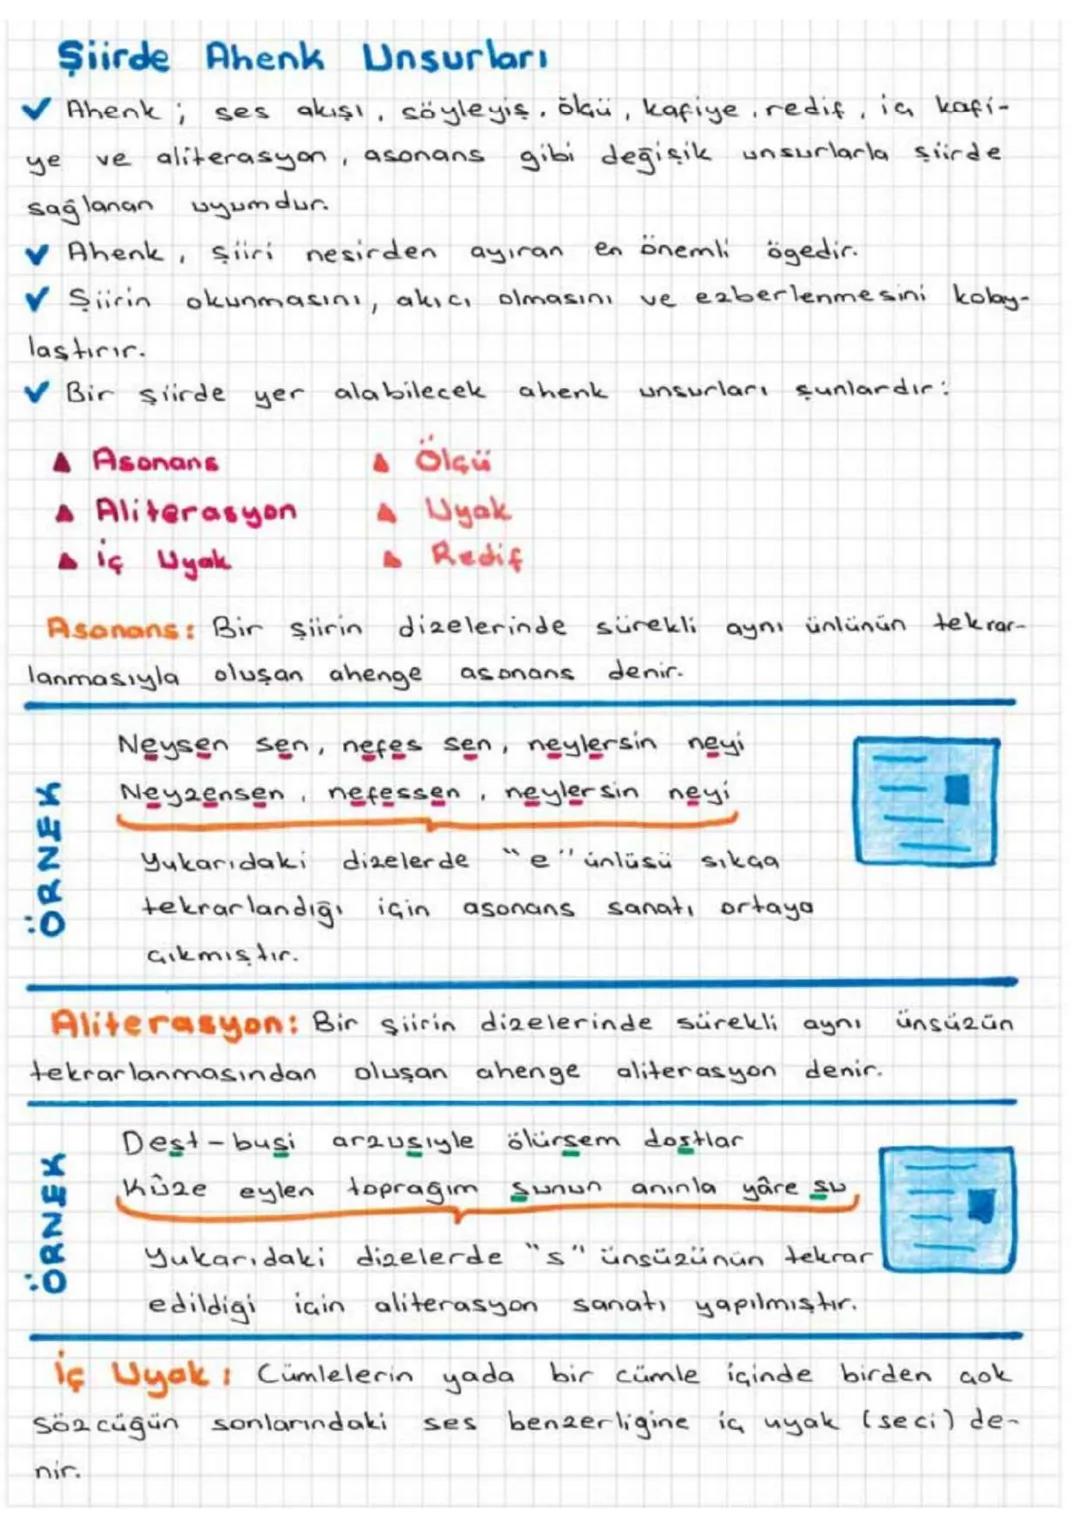 Şiirde Ahenk Unsurları
✓ Ahenk; ses akışı, söyleyiş, ölçü, kafiye, redif, iç kafi-
ye ve aliterasyon, asonans gibi değişik unsurlarla şiirde
sağlanan uyumdur.
✓ Ahenk, şiiri nesirden ayıran en önemli ögedir.
✓ Şiirin okunmasını, akıcı olmasını ve ezberlenmesini kolay-
laştırır.
✓ Bir şiirde yer alabilecek ahenk unsurları şunlardır:
▲ Asonans ▲ Ölçü
▲ Aliterasyon ▲ Uyak
▲ İç Uyak ▲ Redif
Asonans: Bir şiirin dizelerinde sürekli aynı ünlünün tekrar-
lanmasıyla oluşan ahenge asonans denir.
ÖRNEK
Neysen sen, nefes sen, neylersin neyi
Neyzensen, nefessen, neylersin neyi
Yukarıdaki dizelerde "e" ünlüsü sıkça
tekrarlandığı için asonans sanatı ortaya
çıkmıştır.
Aliterasyon: Bir şiirin dizelerinde sürekli aynı ünsüzün
tekrarlanmasından oluşan ahenge aliterasyon denir.
ÖRNEK
Dest-busi arzusıyle ölürsem dostlar
Kûze eylen toprağım sunun anınla yâre su
Yukarıdaki dizelerde "s" ünsüzünün tekrar
edildiği için aliterasyon sanatı yapılmıştır.
İç Uyak: Cümlelerin yada bir cümle içinde birden çok
sözcüğün sonlarındaki ses benzerligine iç uyak (seci) de-
nir.